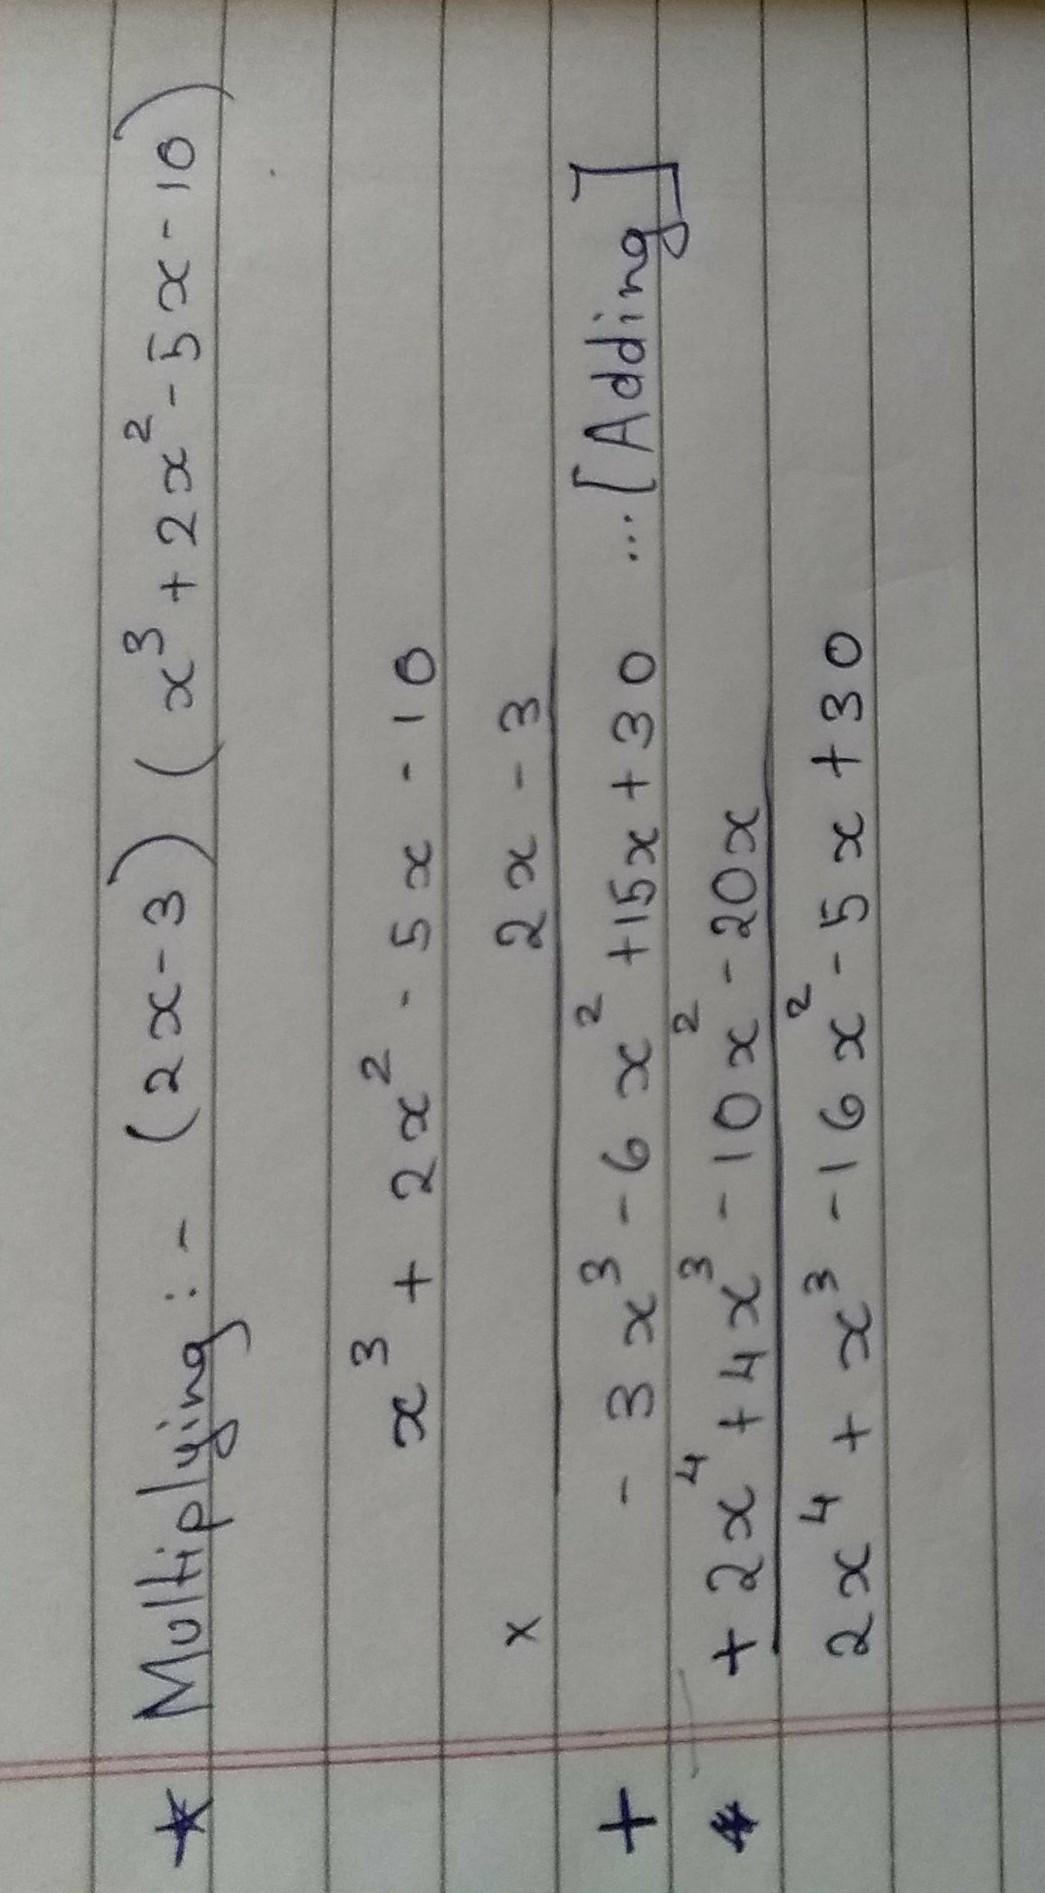 ★ Multiplying :- (2x-3) (x³+2x²-5x-10)
x³ + 2x² - 5x - 10
x 2x - 3
+ - 3x³ - 6x² +15x + 30 ...[Adding]
+ 2x⁴ + 4x³ - 10x² - 20x
2x⁴ + x³ - 16x² - 5x + 30